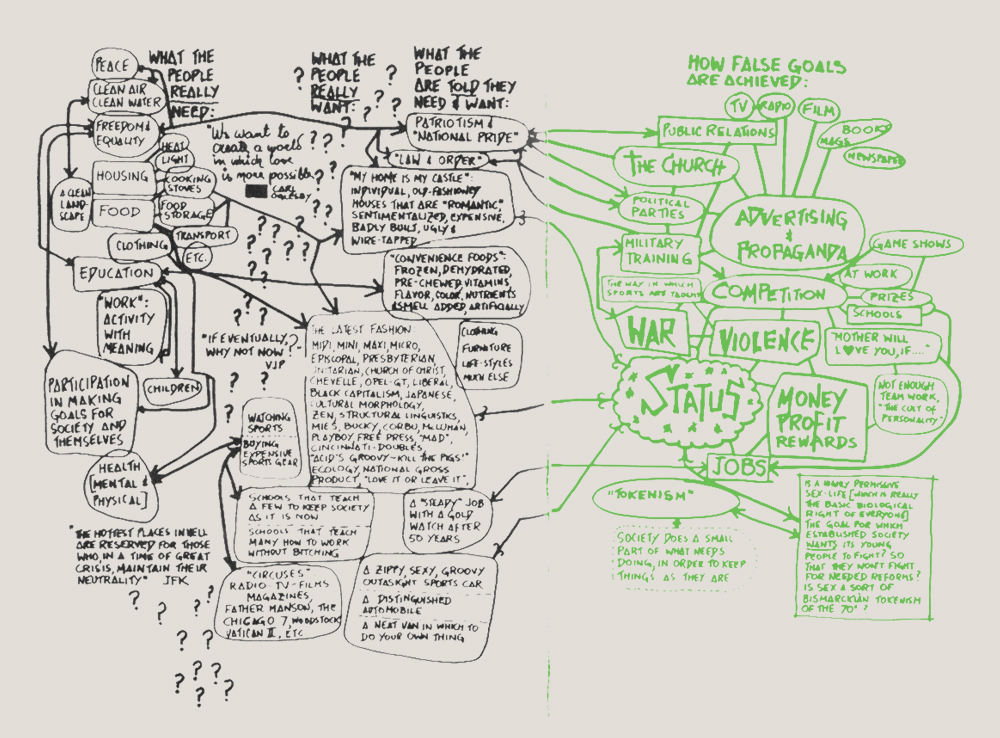 WHAT THE
PEOPLE
REALLY
NEED:
PEACE
CLEAN AIR
CLEAN WATER
FREEDOM &
EQUALITY
HEAT
LIGHT
HOUSING
COOKING
STOVES
A CLEAN
LAND-
SCAPE
FOOD
FOOD
STORAGE
TRANSPORT
CLOTHING
ETC.
EDUCATION
"WORK":
ACTIVITY
WITH
MEANING
PARTICIPATION
IN MAKING
GOALS FOR
SOCIETY AND
THEMSELVES
CHILDREN
HEALTH
[MENTAL &
PHYSICAL]
"THE HOTTEST PLACES IN HELL
ARE RESERVED FOR THOSE
WHO, IN A TIME OF GREAT
CRISIS, MAINTAIN THEIR
NEUTRALITY" JFK
"We want to
create a world
in which love
is more possible"
CARL
OGLESBY
WHAT THE
PEOPLE
REALLY
WANT:
"IF EVENTUALLY,
WHY NOT NOW
VJP
WHAT THE
PEOPLE
ARE TOLD THEY
NEED & WANT:
PATRIOTISM &
"NATIONAL PRIDE"
"LAW & ORDER"
"MY HOME IS MY CASTLE":
INDIVIDUAL, OLD-FASHIONED
HOUSES THAT ARE "ROMANTIC,"
SENTIMENTALIZED, EXPENSIVE,
BADLY BUILT, UGLY &
WIRE-TAPPED
"CONVENIENCE FOODS":
FROZEN, DEHYDRATED,
PRE-CHEWED, VITAMINS,
FLAVOR, COLOR, NUTRIENTS
& SMELL ADDED, ARTIFICIALLY
THE LATEST FASHION:
MIDI, MINI, MAXI, MICRO,
EPISCOPAL, PRESBYTERIAN
UNITARIAN, CHURCH OF CHRIST,
CHEVELLE, OPEL-GT, LIBERAL,
BLACK CAPITALISM, JAPANESE,
CULTURAL MORPHOLOGY,
ZEN, STRUCTURAL LINGUISTICS,
MIES, BUCKY, CORBU, McLUHAN
PLAYBOY, FREE PRESS, "MAD",
CINCINNATI-DOUBLES,
"ACID'S GROOVY-KILL THE PIGS!"
ECOLOGY, NATIONAL GROSS
PRODUCT, "LOVE IT OR LEAVE IT".
CLOTHING
FURNITURE
LIFE-STYLES
MUCH ELSE
WATCHING
SPORTS
BUYING
EXPENSIVE
SPORTS GEAR
SCHOOLS THAT TEACH
A FEW TO KEEP SOCIETY
AS IT IS NOW
SCHOOLS THAT TEACH
MANY HOW TO WORK
WITHOUT BITCHING
A "STEADY" JOB
WITH A GOLD
WATCH AFTER
50 YEARS
"CIRCUSES"
RADIO-TV-FILMS
MAGAZINES,
FATHER MANSON, THE
CHICAGO 7, WOODSTOCK
VATICAN II, ETC
A ZIPPY, SEXY, GROOVY
OUTASIGHT SPORTS CAR
A DISTINGUISHED
AUTOMOBILE
A NEAT VAN IN WHICH TO
DO YOUR OWN THING
HOW FALSE GOALS
ARE ACHIEVED:
TV
RADIO
FILM
BOOK
MAGS
NEWSPAPER
PUBLIC RELATIONS
THE CHURCH
POLITICAL
PARTIES
ADVERTISING
&
PROPAGANDA
MILITARY
TRAINING
GAME SHOWS
AT WORK
THE WAY IN WHICH
SPORTS ARE TAUGHT
COMPETITION
PRIZES
SCHOOLS
WAR
VIOLENCE
"MOTHER WILL
L♥VE YOU, IF....."
STATUS
MONEY
PROFIT
REWARDS
NOT ENOUGH
TEAM WORK,
"THE CULT OF
PERSONALITY"
JOBS
"TOKENISM"
SOCIETY DOES A SMALL
PART OF WHAT NEEDS
DOING, IN ORDER TO KEEP
THINGS AS THEY ARE
IS A NEWLY PERMISSIVE
SEX-LIFE [WHICH IS REALLY
THE BASIC BIOLOGICAL
RIGHT OF EVERYONE]
THE GOAL FOR WHICH
ESTABLISHED SOCIETY
WANTS ITS YOUNG
PEOPLE TO FIGHT? SO
THAT THEY WON'T FIGHT
FOR NEEDED REFORMS?
IS SEX A SORT OF
BISMARCKIAN TOKENISM
OF THE 70s ?